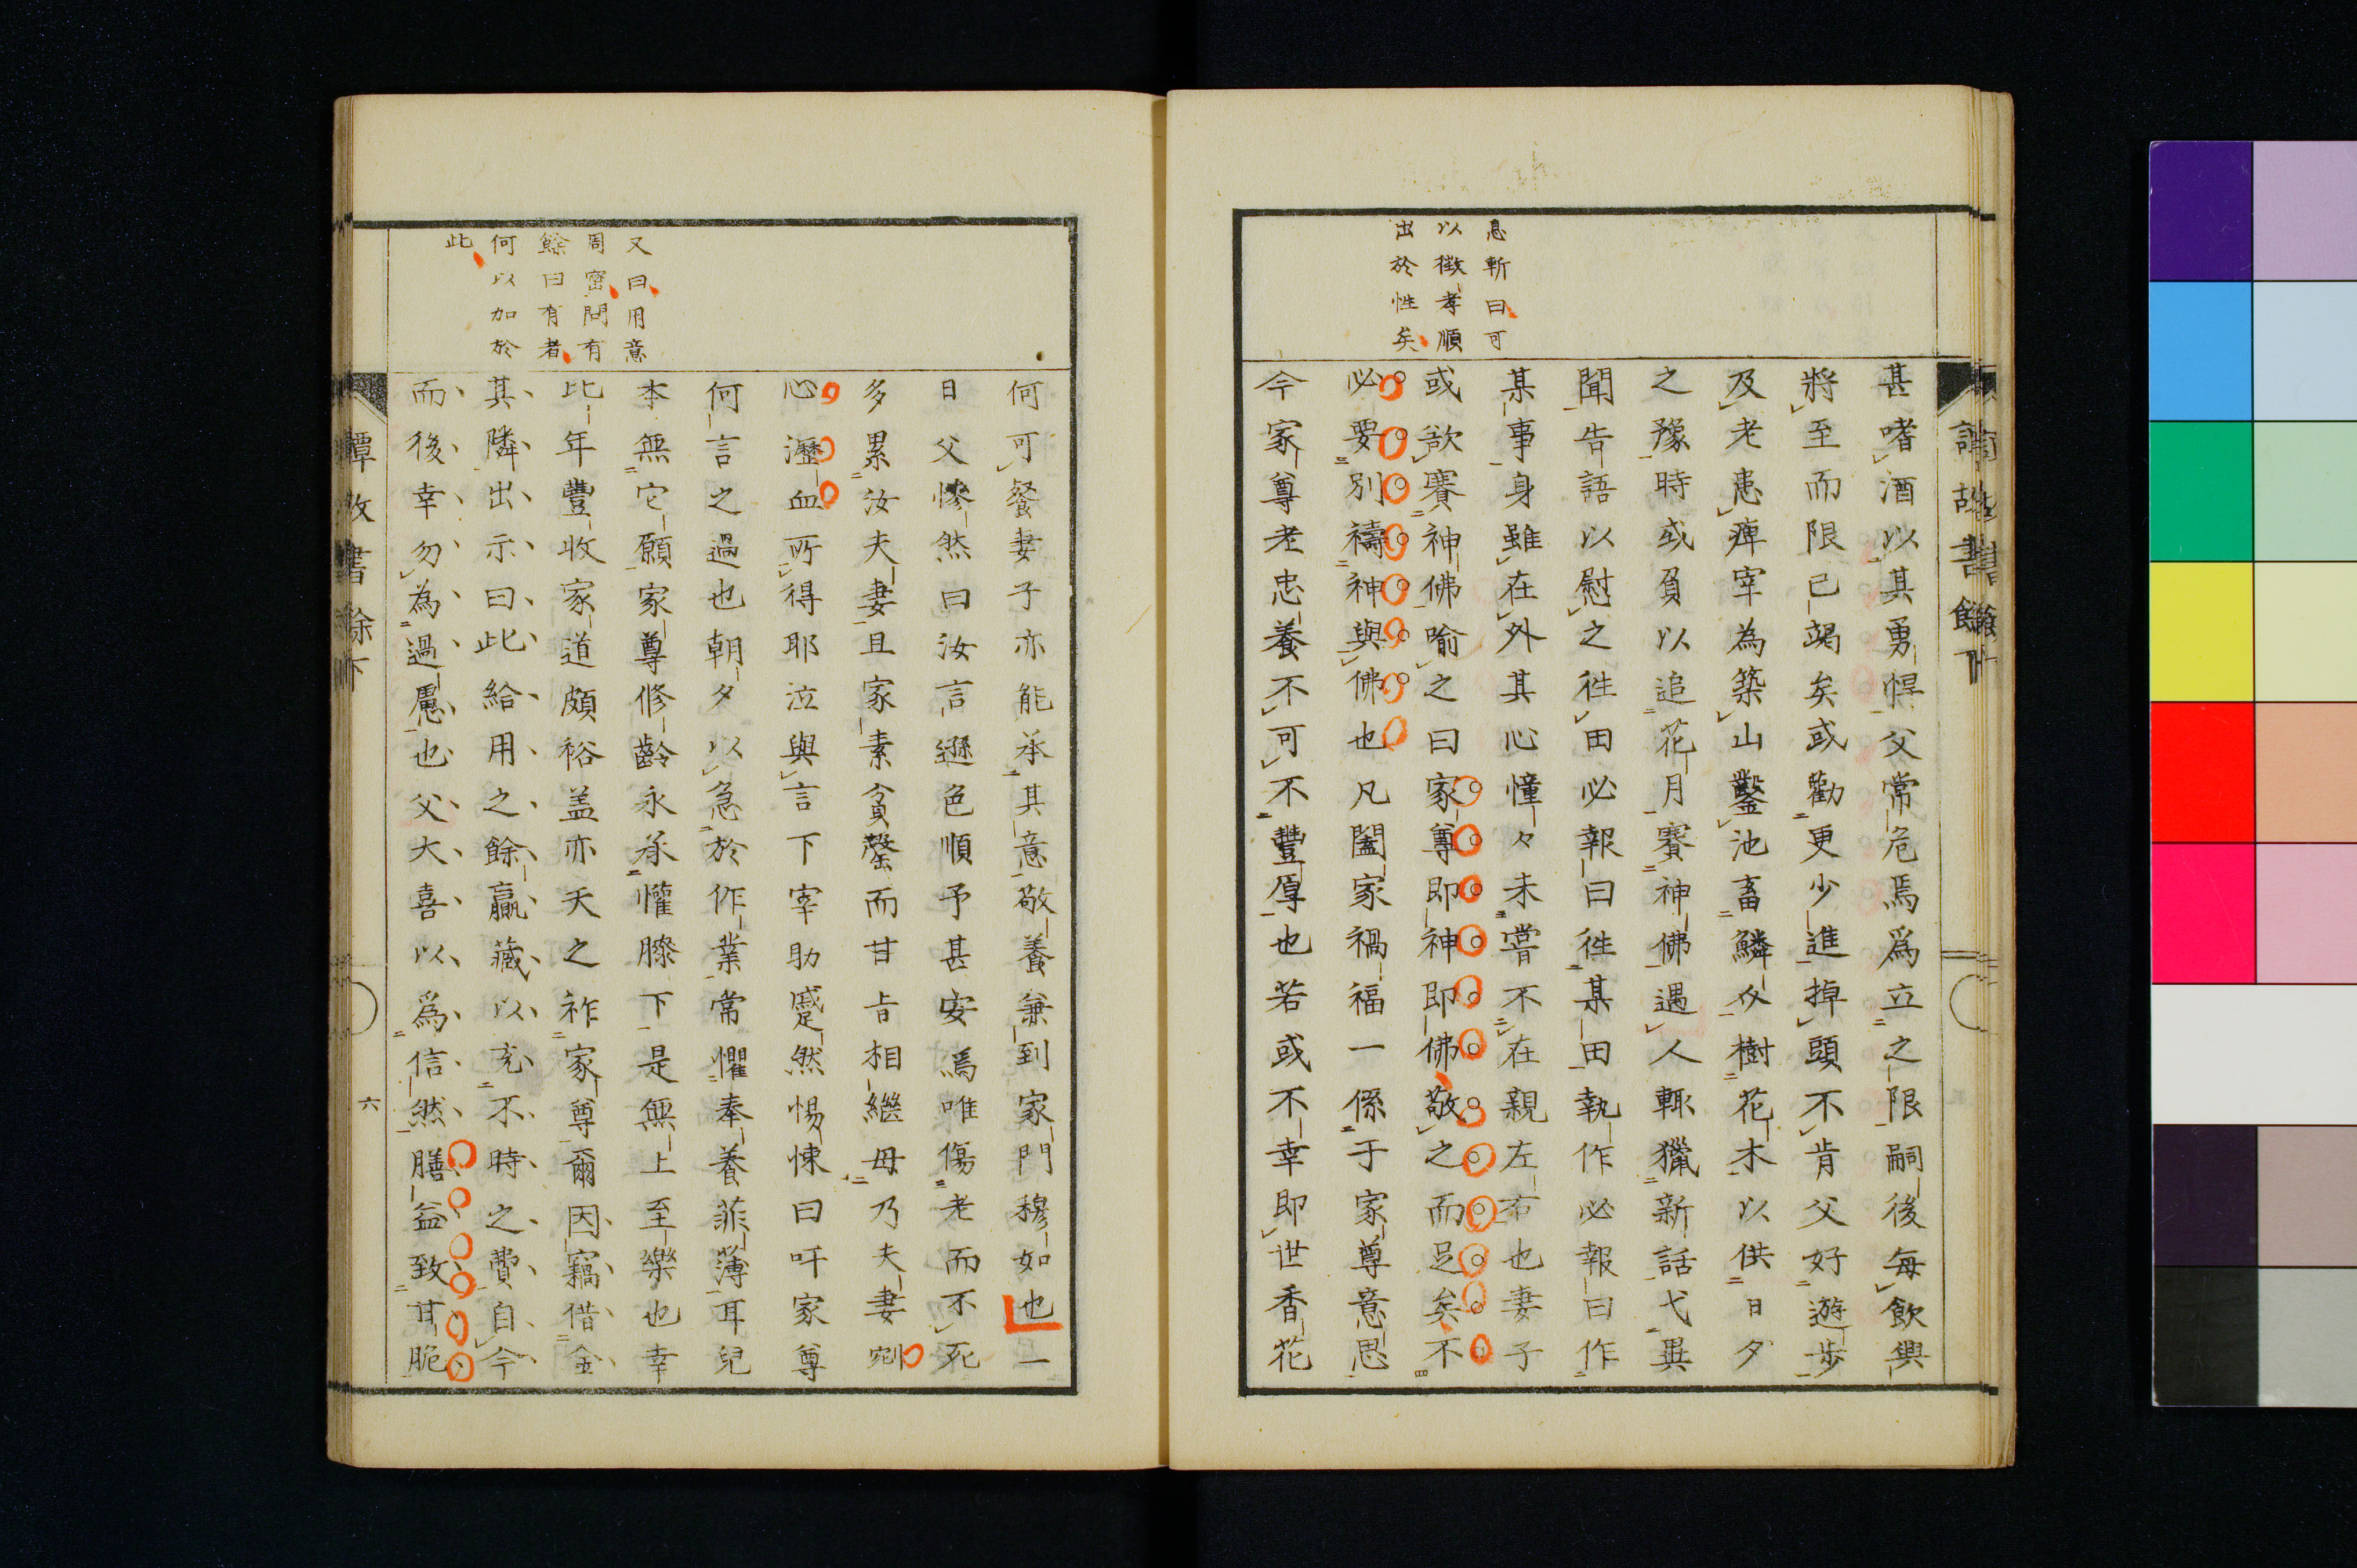 息軒曰可
以徴孝順
出於性矣
甚嗜酒以其勇悍父常危焉爲立之限嗣後毎飲輿
將至而限已竭矣或勸更少進掉頭不肯父好遊歩
及老患痺宰為築山鑿池畜鱗介樹花木以供日夕
之豫時或負以追花月賽神佛遇人輒獵新話弋異
聞告語以慰之徃田必報曰徃某田執作必報曰作
某事身雖在外其心憧々未嘗不在親左右也妻子
或欲賽神佛喻之曰家尊即神即佛敬之而足矣不
必要別禱神與佛也凡闔家禍福一係于家尊意思
今家尊老忠養不可不豐厚也若或不幸即世香花
又曰用意
周密問有
餘曰有者
何以加於
此
何可餐妻子亦能承其意敬養兼到家門穆如也一
日父慘然曰汝言遜色順予甚安焉唯傷老而不死
多累汝夫妻且家素貧罄而甘旨相繼毋乃夫妻剜
心瀝血所得耶泣與言下宰助蹙然惕悚曰吁家尊
何言之過也朝夕以急於作業常懼奉養菲薄耳兒
本無它願家尊修齡永承懽膝下是無上至樂也幸
比年豐收家道頗裕盖亦天之祚家尊爾因竊借金
其隣出示曰此給用之餘贏藏以充不時之費自今
而後幸勿為過慮也父大喜以爲信然膳益致甘脆
六